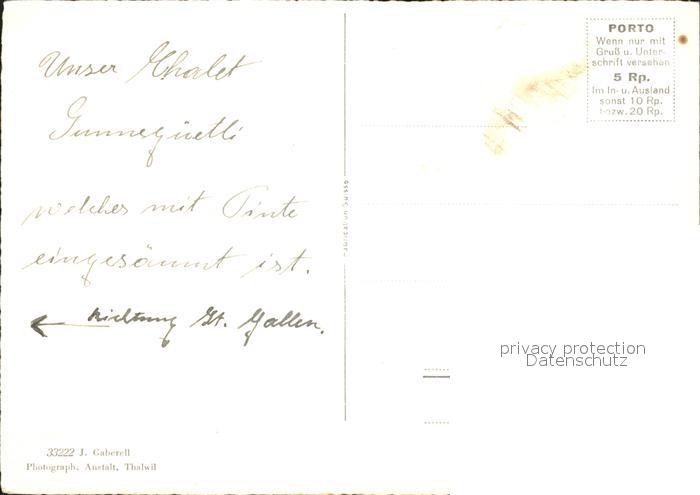 Unser Chalet
Sunnegüetli
welches mit Tinte
eingesäumt ist.
← Richtung St. Gallen.
33222 J. Gaberell
Photograph. Anstalt, Thalwil
Fabrication Suisse
PORTO
Wenn nur mit
Gruß u. Unter-
schrift versehen
5 Rp.
Im In- u. Ausland
sonst 10 Rp.
bezw. 20 Rp.
privacy protection
Datenschutz